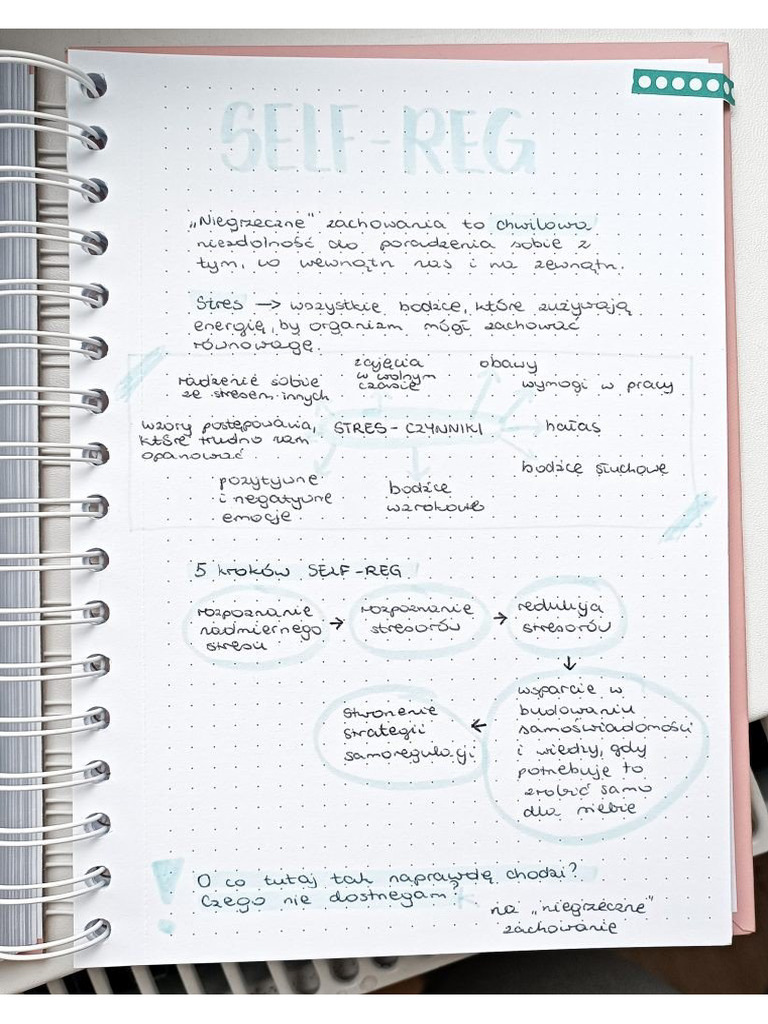 SELF-REG
„Niegrzeczne" zachowania to chwilowa
niezdolność do poradzenia sobie z
tym, co wewnątrz nas i na zewnątrz.
Stres → wszystkie bodźce, które zużywają
energię, by organizm mógł zachować
równowagę.
zajęcia
w wolnym
czasie
obawy
radzenie sobie
ze stresem innych
wymogi w pracy
wzory postępowania,
które trudno nam
opanować
STRES-CZYNNIKI
hałas
bodźce słuchowe
pozytywne
i negatywne
emocje
bodźce
wzrokowe
5 kroków SELF-REG
rozpoznanie
nadmiernego
stresu
→
rozpoznanie
stresorów
→
redukcja
stresorów
↓
wsparcie w
budowaniu
samoświadomości
i wiedzy, gdy
potrzebuje to
zrobić samo
dla siebie
←
stworzenie
strategii
samoregulacji
! O co tutaj tak naprawdę chodzi?
Czego nie dostrzegam?
na „niegrzeczne"
zachowanie